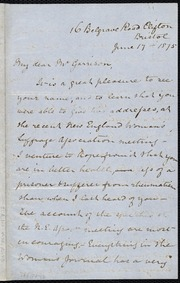 16 Belgrave Road Clifton
Bristol
June 17 - 1875
My dear Mr Garrison,
It is a great pleasure to see
your name, and to learn that you
were able to give addresses, at
the recent New England Woman's
Suffrage Association meeting -
I venture to hope from it that you
are in better health, and less of a
prisoner & sufferer from rheumatism
than when I last heard of you -
The accounts of the speeches at
the N.E. Assn meeting are most
encouraging. Everything in The
Woman's Journal has a very